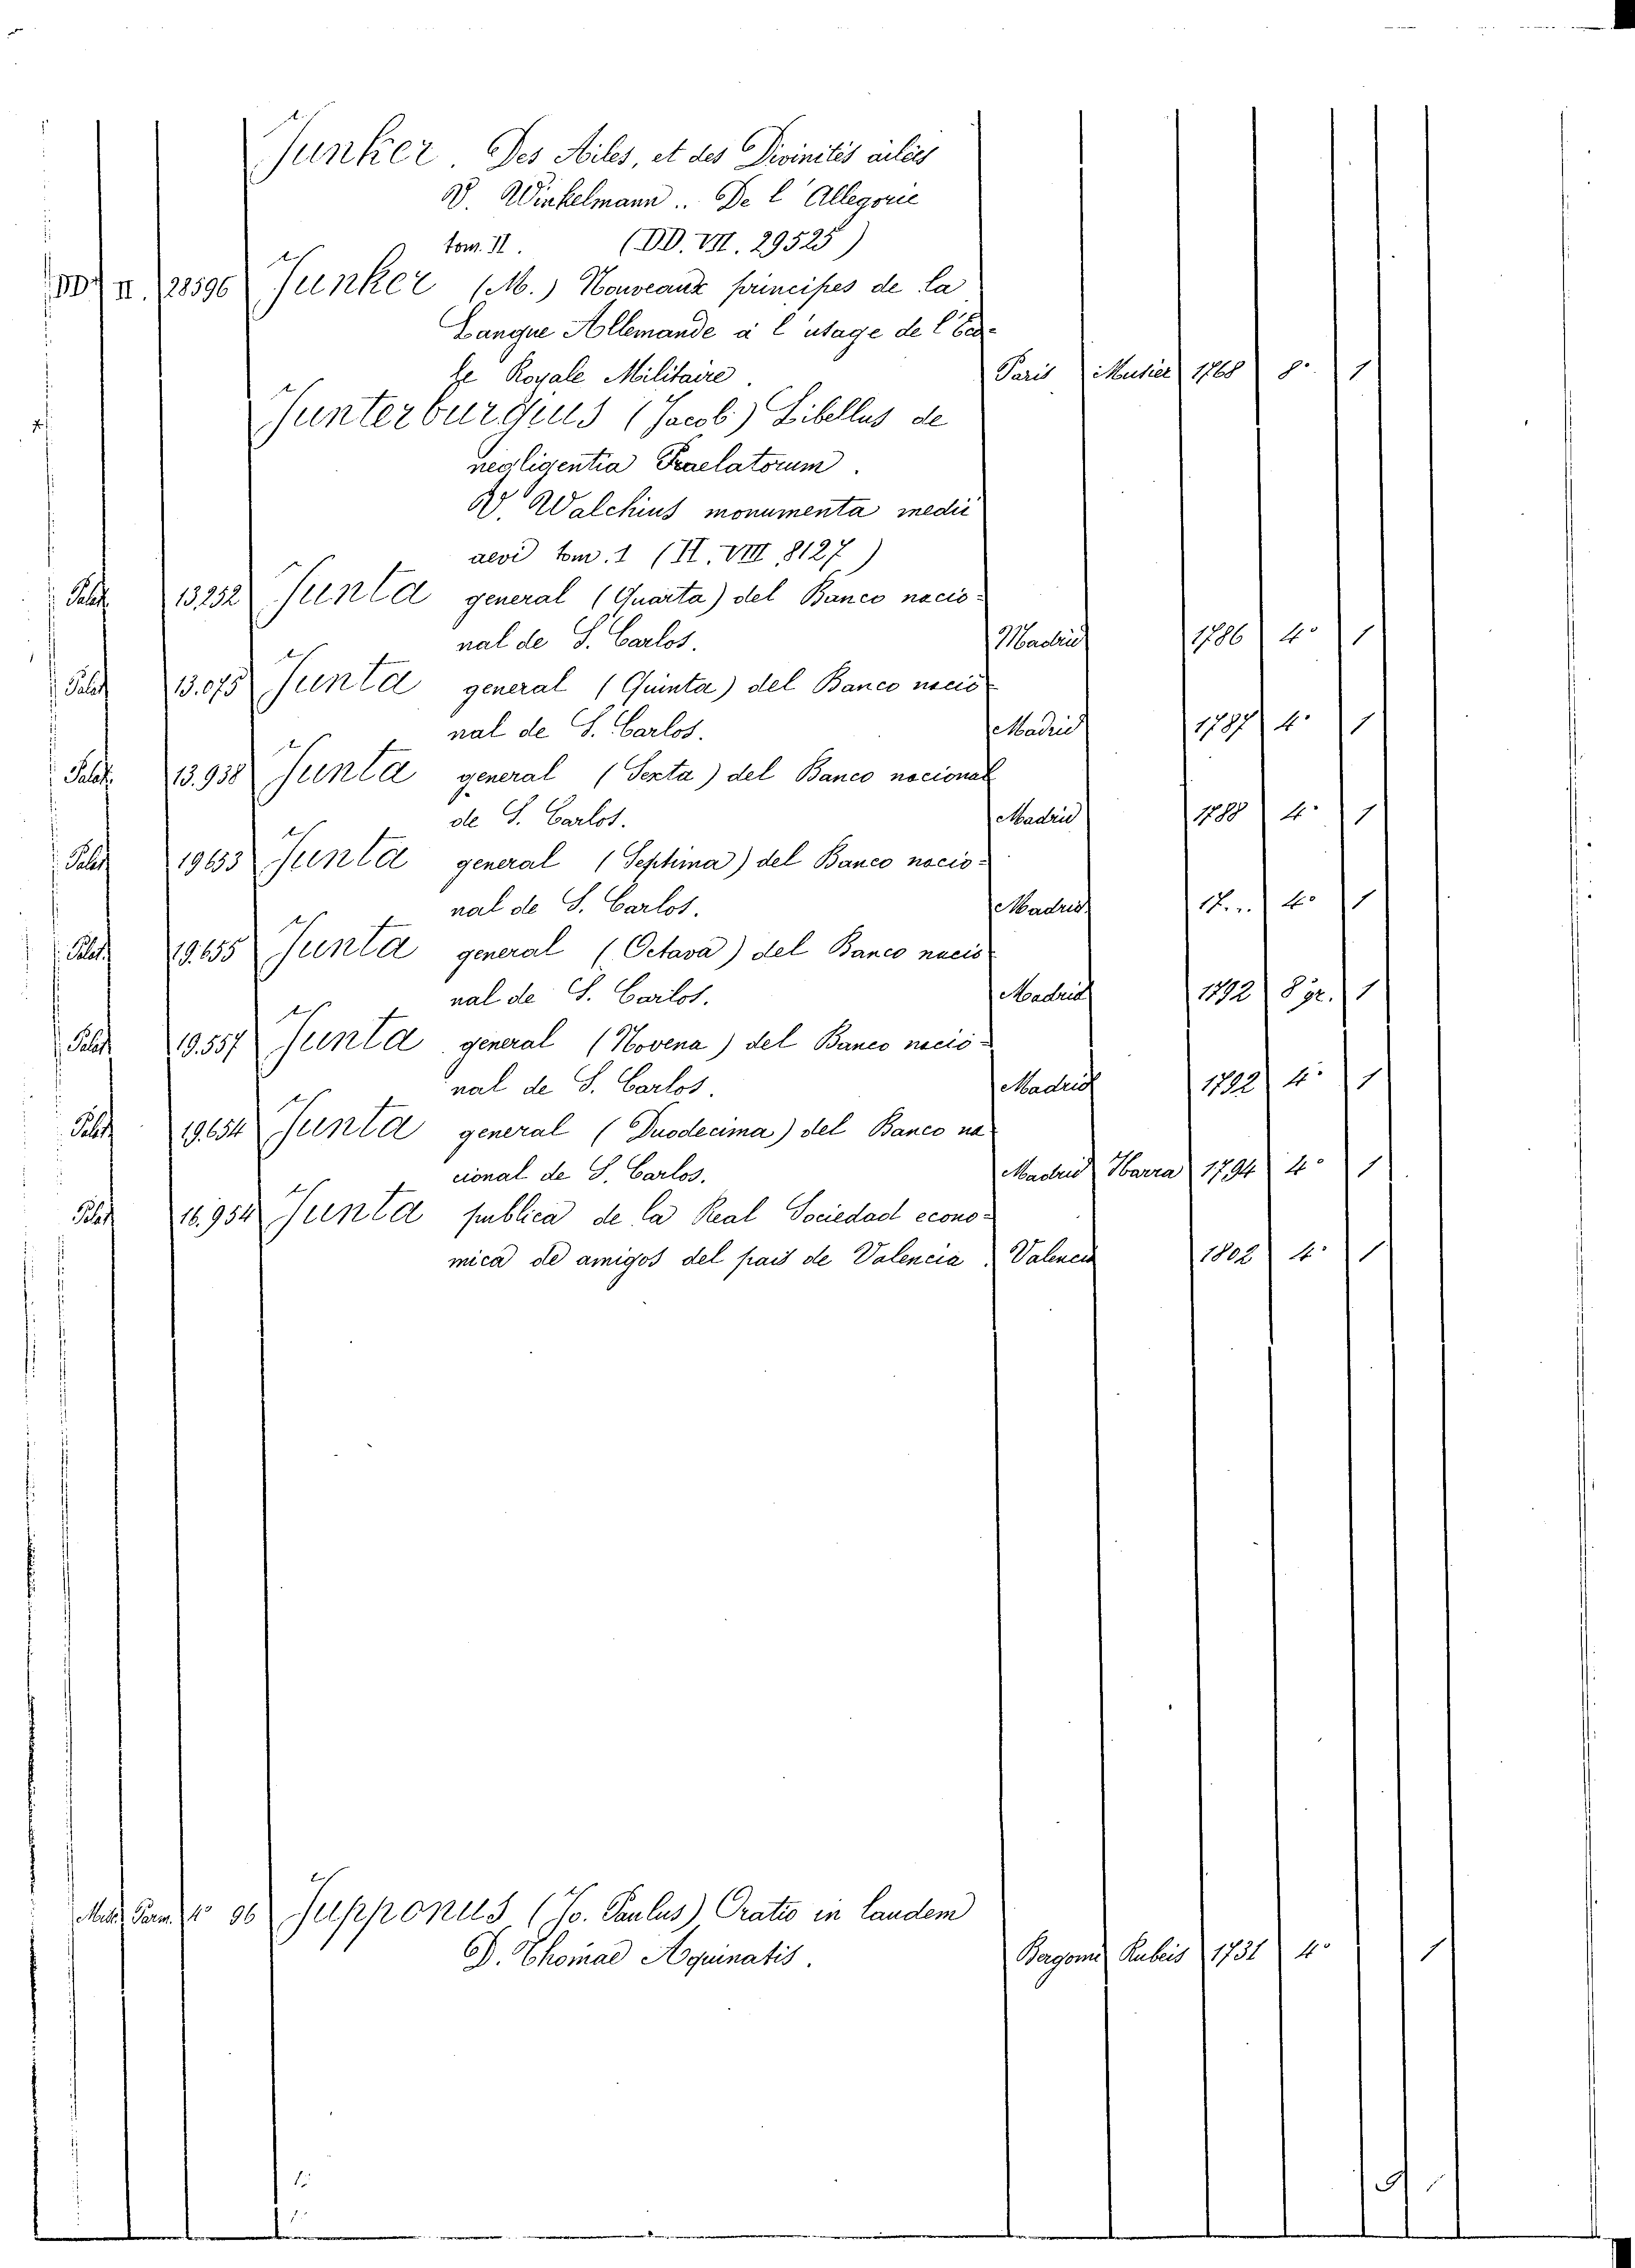 Junker. Des Ailes, et des Divinités ailées
V. Winkelmann.. De l'Allegorie
tom. II. (DD. VII. 29525)
DD. II. 28596 Junker (M.) Nouveaux principes de la
Langue Allemande à l'usage de l'Eco-
le Royale Militaire. Paris Musier 1768 8° 1
Junterburgius (Jacob) Libellus de
negligentia Praelatorum.
V. Walchius monumenta medii
aevi tom. 1 (II. VIII. 8127)
Palat. 13.252 Junta general (Quarta) del Banco nacio-
nal de S. Carlos. Madrid 1786 4° 1
Palat. 13.075 Junta general (Quinta) del Banco nacio-
nal de S. Carlos. Madrid 1787 4° 1
Palat. 13.938 Junta general (Sexta) del Banco nacional
de S. Carlos. Madrid 1788 4° 1
Palat. 19653 Junta general (Septima) del Banco nacio-
nal de S. Carlos. Madrid 17... 4° 1
Palat. 19.655 Junta general (Octava) del Banco nacio-
nal de S. Carlos. Madrid 1792 8 gr. 1
Palat. 19.557 Junta general (Novena) del Banco nacio-
nal de S. Carlos. Madrid 1792 4° 1
Palat. 19.654 Junta general (Duodecima) del Banco na
cional de S. Carlos. Madrid Ibarra 1794 4° 1
Palat. 16.954 Junta publica de la Real Sociedad econo-
mica de amigos del pais de Valencia. Valencia 1802 4° 1
Misc. Parm. 4° 96 Jupponus (Jo. Paulus) Oratio in laudem
D. Thomae Aquinatis. Bergomi Rubeis 1731 4° 1
9